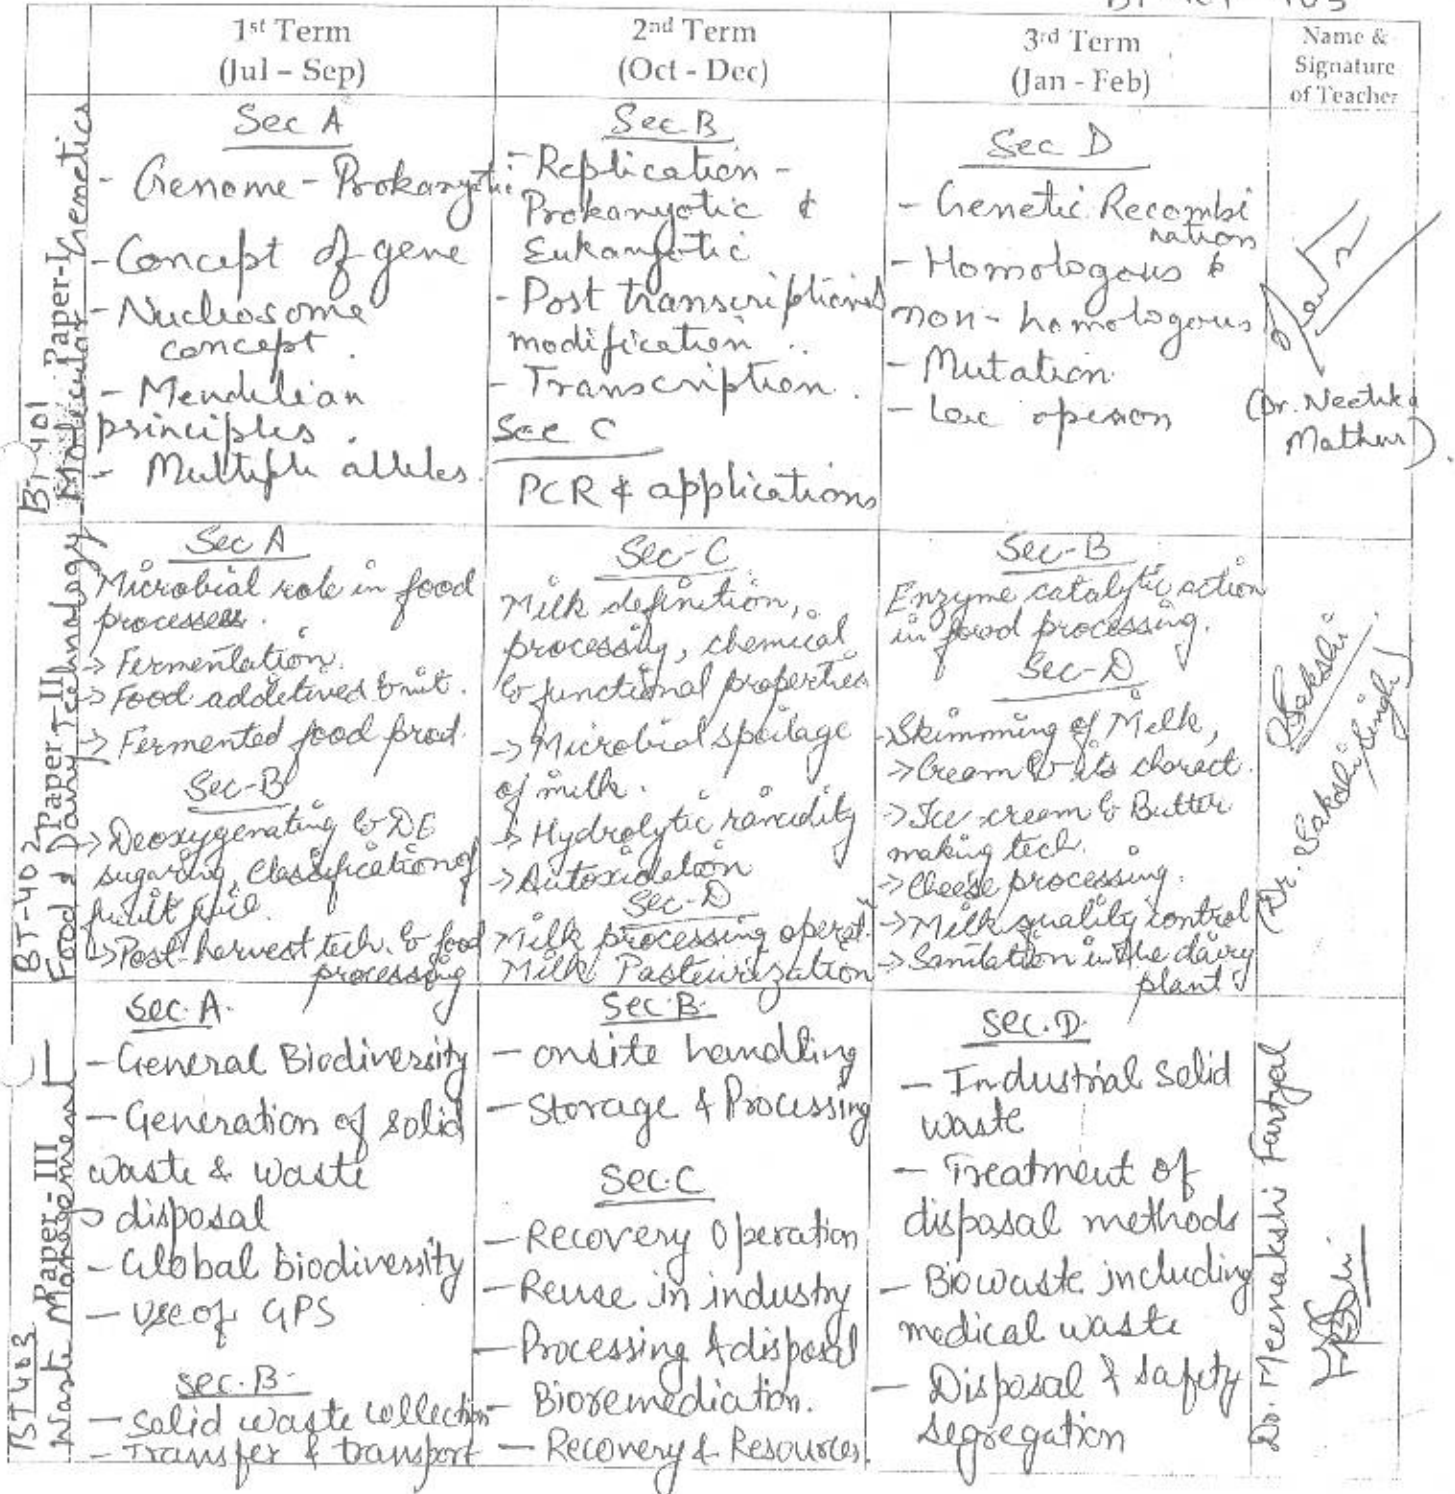 1st Term
(Jul – Sep)
2nd Term
(Oct - Dec)
3rd Term
(Jan - Feb)
Name &
Signature
of Teacher
BT-401 Paper-I
Molecular Genetics
Sec A
- Genome - Prokaryotic
- Concept of gene
- Nucleosome
concept.
- Mendelian
principles.
- Multiple alleles.
Sec B
- Replication -
Prokaryotic &
Eukaryotic
- Post transcriptional
modification ..
- Transcription.
Sec C
PCR & applications
Sec D
- Genetic Recombi
nation
- Homologous &
non-homologous
- Mutation
- Lac operon
(Dr. Neetika
Mathur).
BT-402 Paper-II
Food & Dairy Technology
Sec A
Microbial role in food
processes.
-> Fermentation.
-> Food additives & nut.
-> Fermented food prod.
Sec-B
-> Deoxygenating & DE
sugaring, Classification of
fruit juice.
-> Post-harvest tech. & food
processing
Sec-C
Milk definition,
processing, chemical
& functional properties
-> Microbial spoilage
of milk.
-> Hydrolytic rancidity
-> Autoxidation
Sec-D
Milk processing operat.
Milk Pasteurization
Sec-B
Enzyme catalytic action
in food processing.
Sec-D
-> Skimming of Milk,
-> Cream & its charact.
-> Ice-cream & Butter
making tech.
-> Cheese processing.
-> Milk quality control
-> Sanitation in the dairy
plant
Sakshi
(Dr. Sakshi Singh)
BT 403 Paper-III
Waste Management
Sec. A.
- General Biodiversity
- Generation of solid
waste & waste
disposal
- Global biodiversity
- Use of GPS
Sec. B.
- Solid waste collection
- Transfer & transport
Sec. B.
- onsite handling
- Storage & Processing
Sec. C
- Recovery Operation
- Reuse in industry
- Processing & disposal
- Bioremediation.
- Recovery & Resources.
Sec. D.
- Industrial Solid
waste
- Treatment of
disposal methods
- Biowaste including
medical waste
- Disposal & safety
segregation
Dr. Meenakshi Fartyal